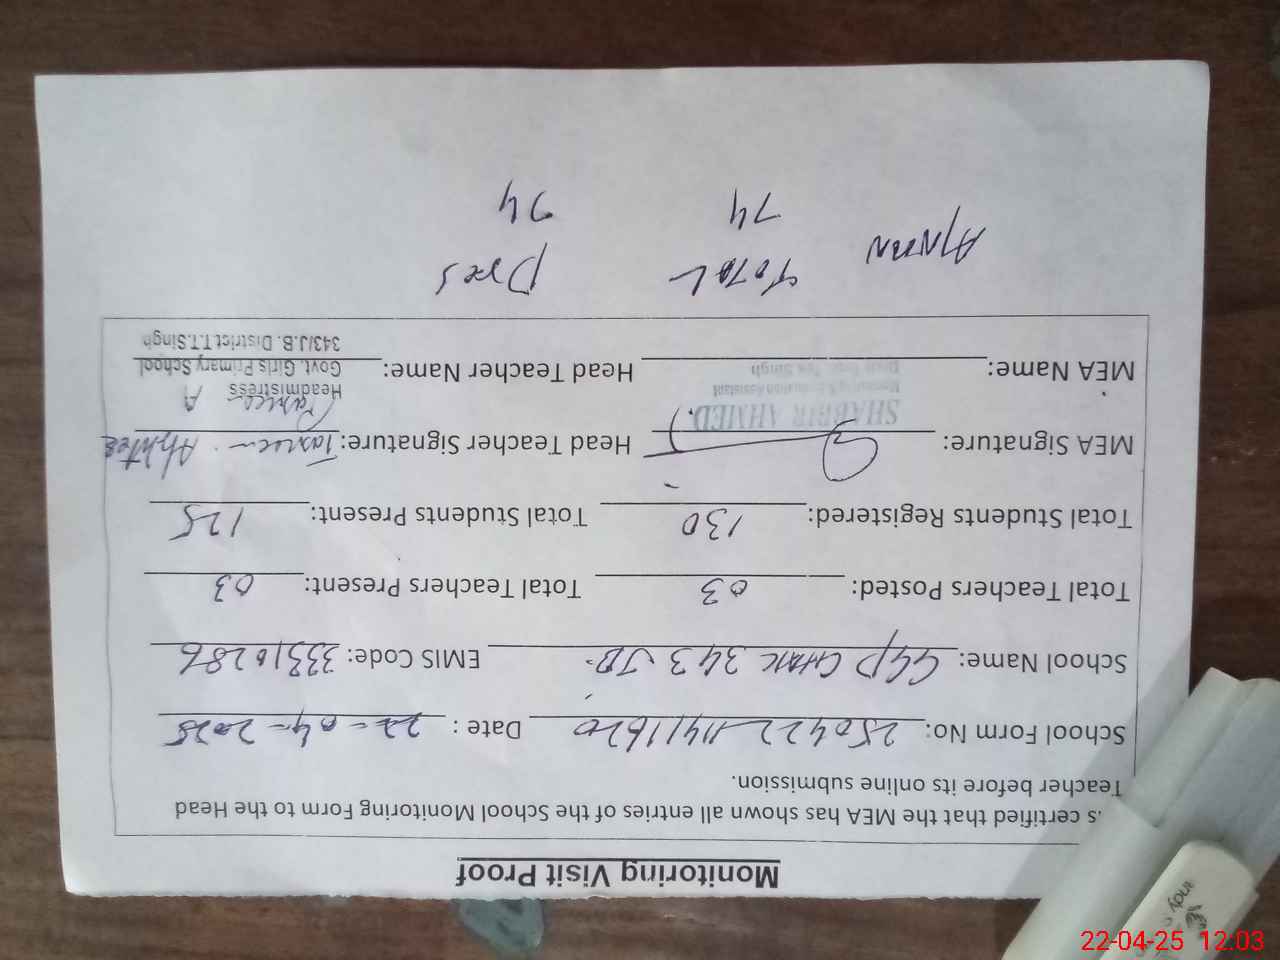 Monitoring Visit Proof
is certified that the MEA has shown all entries of the School Monitoring Form to the Head
Teacher before its online submission.
School Form No: 250422 11411620 Date : 22-04-2025
School Name: GGP CHAK 343 JB EMIS Code: 33310286
Total Teachers Posted: 03 Total Teachers Present: 03
Total Students Registered: 130 Total Students Present: 125
MEA Signature: Head Teacher Signature: Tasneem Akhtar
SHABBIR AHMED
Monitoring & Evaluation Assistant
Distt: Toba Tek Singh
MEA Name: Head Teacher Name:
Headmistress
Govt. Girls Primary School
343/J.B. District T.T.Singh
TOTAL Pres
74 74
22-04-25 12:03